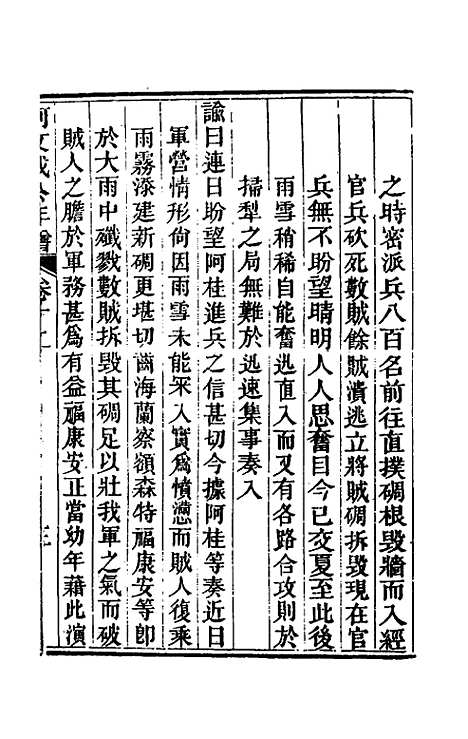 之時密派兵八百名前往直撲碉根毀牆而入經
官兵砍死數賊餘賊潰逃立將賊碉拆毀現在官
兵無不盼望晴明人人思奮目今已交夏至此後
雨雪稍稀自能奮迅直入而又有各路合攻則於
掃犁之局無難於迅速集事奏入
諭曰連日盼望阿桂進兵之信甚切今據阿桂等奏近日
軍營情形尙因雨雪未能深入實爲憤懣而賊人復乘
雨霧添建新碉更堪切齒海蘭察額森特福康安等卽
於大雨中殲戮數賊拆毀其碉足以壯我軍之氣而破
賊人之膽於軍務甚爲有益福康安正當幼年藉此演
阿文成公年譜 卷十